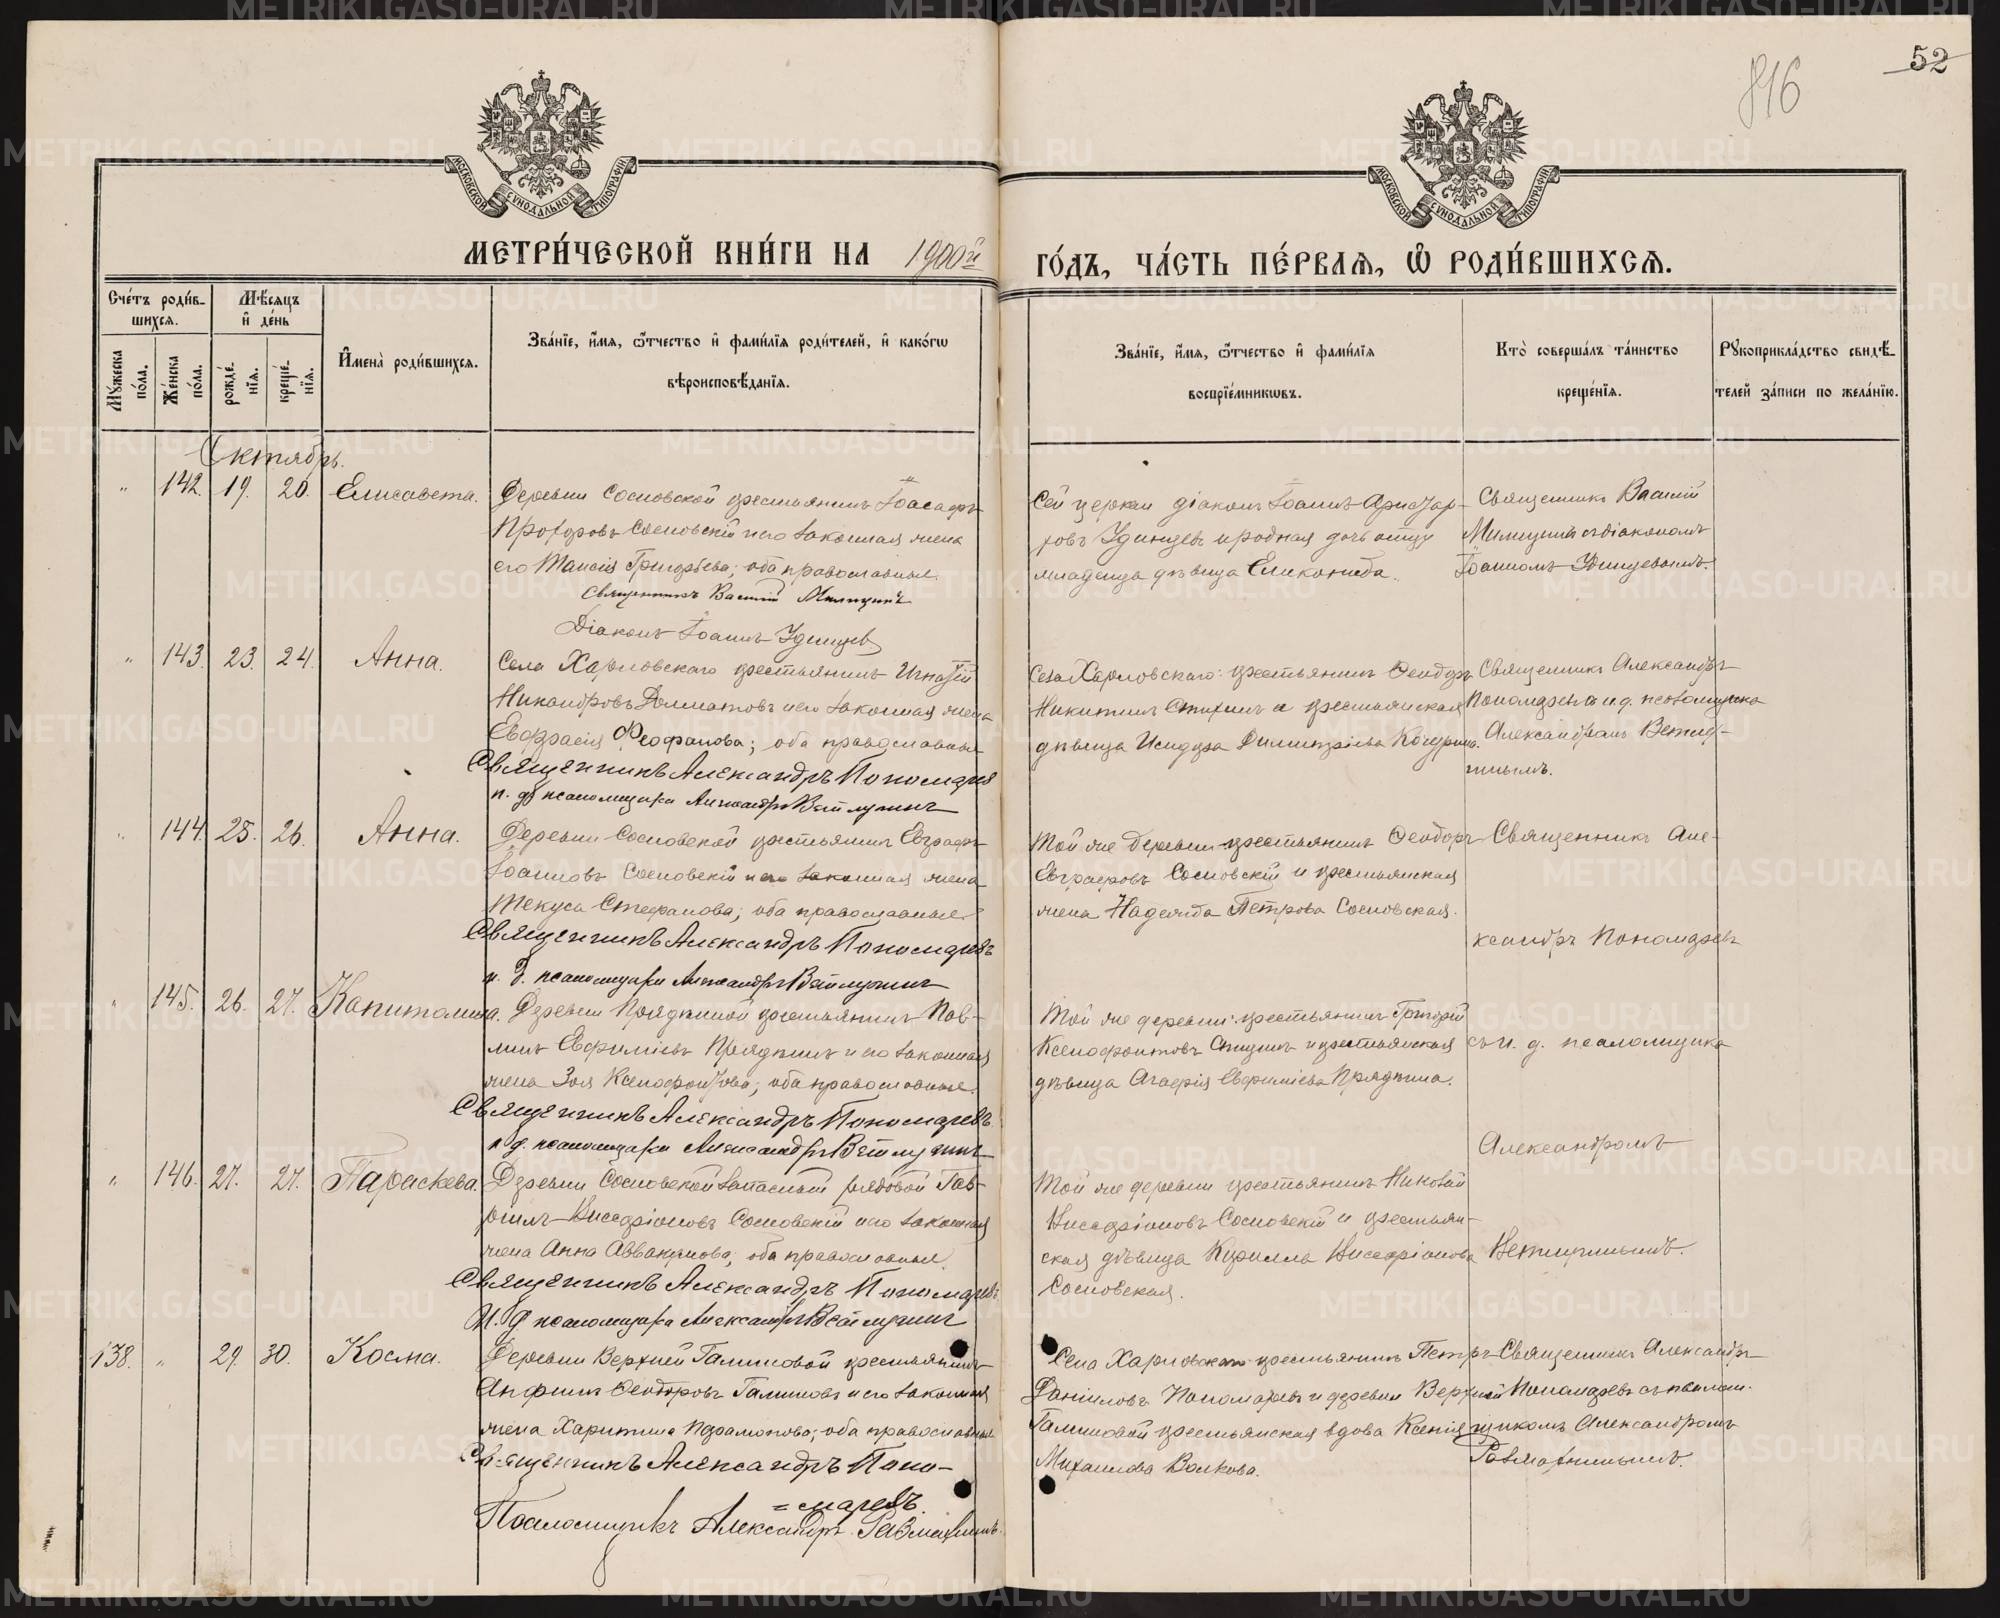 816
52
МОСКОВСКОЙ СѴНОДАЛЬНОЙ ТИПОГРАФІИ
МОСКОВСКОЙ СѴНОДАЛЬНОЙ ТИПОГРАФІИ
МЕТРИ́ЧЕСКОЙ КНИ́ГИ НА 1900й
ГО́ДЪ, ЧА́СТЬ ПЕ́РВАѦ, Ѽ РОДИ́ВШИХСѦ.
Сче́тъ роди́в-
шихсѧ.
Мѣ́сѧцъ
и҆ де́нь
Мꙋ́жеска
по́ла.
Же́нска
по́ла.
рожде́-
нїѧ.
креще́-
нїѧ.
И҆мена̀ роди́вшихсѧ.
Зва́нїе, и҆́мѧ, ѻ҆́тчество и҆ фами́лїѧ роди́телей, и҆ како́гѡ
вѣроисповѣ́данїѧ.
Зва́нїе, и҆́мѧ, ѻ҆́тчество и҆ фами́лїѧ
воспрїе́мникѡвъ.
Кто̀ соверша́лъ та́инство
креще́нїѧ.
Рꙋкоприкла́дство свидѣ́-
телей за́писи по жела́нїю.
Октябрь.
" 142. 19. 20. Елисавета.
Деревни Сосновской крестьянинъ Іоасафъ
Прохоровъ Сосновскій и его законная жена
его Таисія Григорьева; оба православные.
Священникъ Василій Милицинъ
Діаконъ Іоаннъ Удинцев
Сей церкви діаконъ Іоаннъ Аристар-
ховъ Удинцевъ и родная дочь отцу
младенца дѣвица Еликонида.
Священникъ Василій
Милицинъ съ діакономъ
Іоанномъ Удинцевымъ.
" 143. 23. 24. Анна.
Села Харловскаго крестьянинъ Игнатій
Никандровъ Долматовъ и его законная жена
Евфрасія Феофанова; оба православные
Священникъ Александръ Пономарев
и. д. псаломщика Александръ Ветлугинъ
Села Харловскаго крестьянинъ Ѳеодоръ
Никитинъ и крестьянская
дѣвица Исидора Димитріева
Священникъ Александръ
Пономаревъ и. д. псаломщика
Александромъ Ветлу-
гинымъ.
" 144. 25. 26. Анна.
Деревни Сосновской крестьянинъ Евграфъ
Іоанновъ Сосновскій и его законная жена
Текуса Стефанова; оба православные
Священникъ Александръ Пономаревъ
и. д. псаломщика Александръ Ветлугинъ
Той же деревни крестьянинъ Ѳеодоръ
Евграфовъ Сосновскій и крестьянская
жена Надежда Петрова Сосновская.
Священникъ Але-
ксандръ Пономаревъ
" 145. 26. 27. Капитолина.
Деревни Прядкиной крестьянинъ Пав-
линъ Евфиміевъ Прядкинъ и его законная
жена Зоя Ксенофонтова; оба православные.
Священникъ Александръ Пономаревъ
и д. псаломщика Александръ Ветлугинъ
Той же деревни крестьянинъ Григорій
Ксенофонтовъ и крестьянская
дѣвица Агафія Евфиміева Прядкина.
съ и. д. псаломщика
" 146. 27. 27. Параскева.
Деревни Сосновской запасный рядовой Гав-
ріилъ Виссаріоновъ Сосновскій и его законная
жена Анна Аввакумова; оба православные.
Священникъ Александръ Пономаревъ
И. д псаломщика Александръ Ветлугинъ
Той же деревни крестьянинъ Николай
Виссаріоновъ Сосновскій и крестьян-
ская дѣвица Кирилла Виссаріонова
Сосновская.
Александромъ
Ветлугинымъ.
138. " 29. 30. Косма.
Деревни Верхней Галишовой крестьянинъ
Анфимъ Ѳеодоровъ Галишовъ и его законная
жена Харитина Парамонова; оба православные
Священникъ Александръ Поно-
=маревъ.
Псаломщикъ Александръ
Села Харловскаго крестьянинъ Петръ
Даніиловъ Пономаревъ и деревни Верхней
Галишовой крестьянская вдова Ксенія
Михаилова Волкова.
Священникъ Александръ
Пономаревъ съ псалом-
щикомъ Александромъ